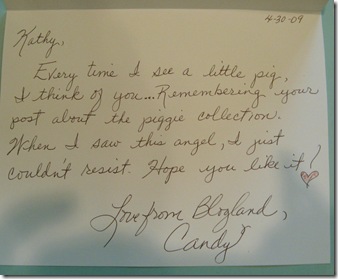 4-30-09
Kathy,
Every time I see a little pig,
I think of you...Remembering your
post about the piggie collection.
When I saw this angel, I just
couldn't resist. Hope you like it!
Love from Blogland,
Candy